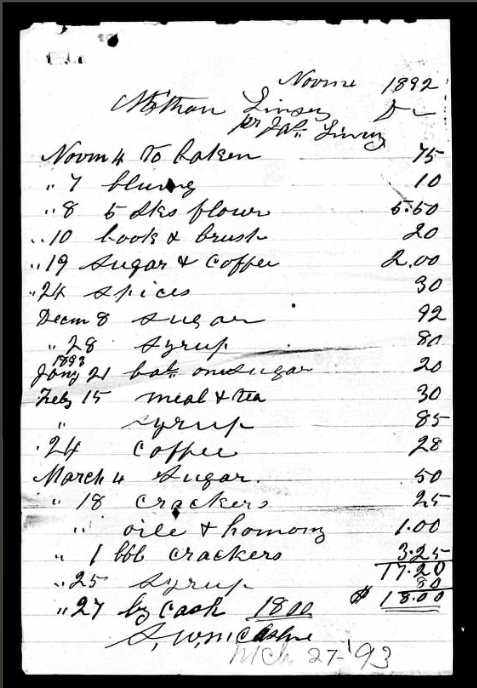 Novm 1892
Nathan Linsey Dr
pr Jas. Linsey
Novm 4 To baken 75
" 7 bluing 10
" 8 5 sks flour 5.50
" 10 book & brush 20
" 19 sugar & coffee 2.00
" 24 spices 30
Decm 8 sugar 92
" 28 syrup 80
1893
Jany 21 bal on sugar 20
Feby 15 meal & tea 30
" syrup 85
" 24 coffee 28
March 4 sugar. 50
" 18 crackers 25
" oile & hominy 1.00
" 1 bbb crackers 3.25
17.20
" 25 syrup 80
" 27 by cash 18 00 $ 18.00
S. W. McCashre
Mch 27-'93